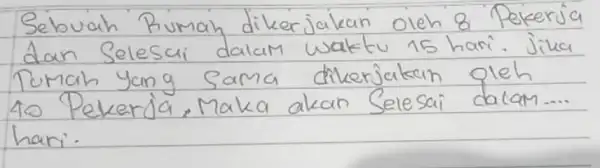 Sebuah Rumah dikerjakan oleh 8 Pekerja
dan Selesai dalam waktu 15 hari. Jika
rumah yang sama dikerjakan oleh
10 Pekerja, Maka akan Selesai dalam....
hari.